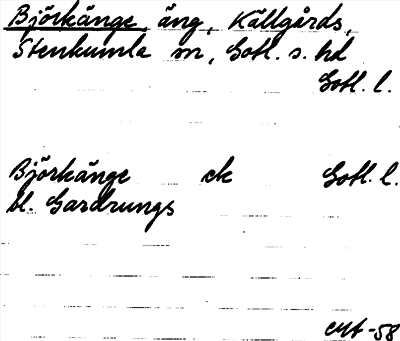 Björkänge, äng, Källgårds,
Stenkumla sn, Gotl. s. hd
Gotl. l.
Björkänge ek Gotl. l.
bl. Gardrungs
-58